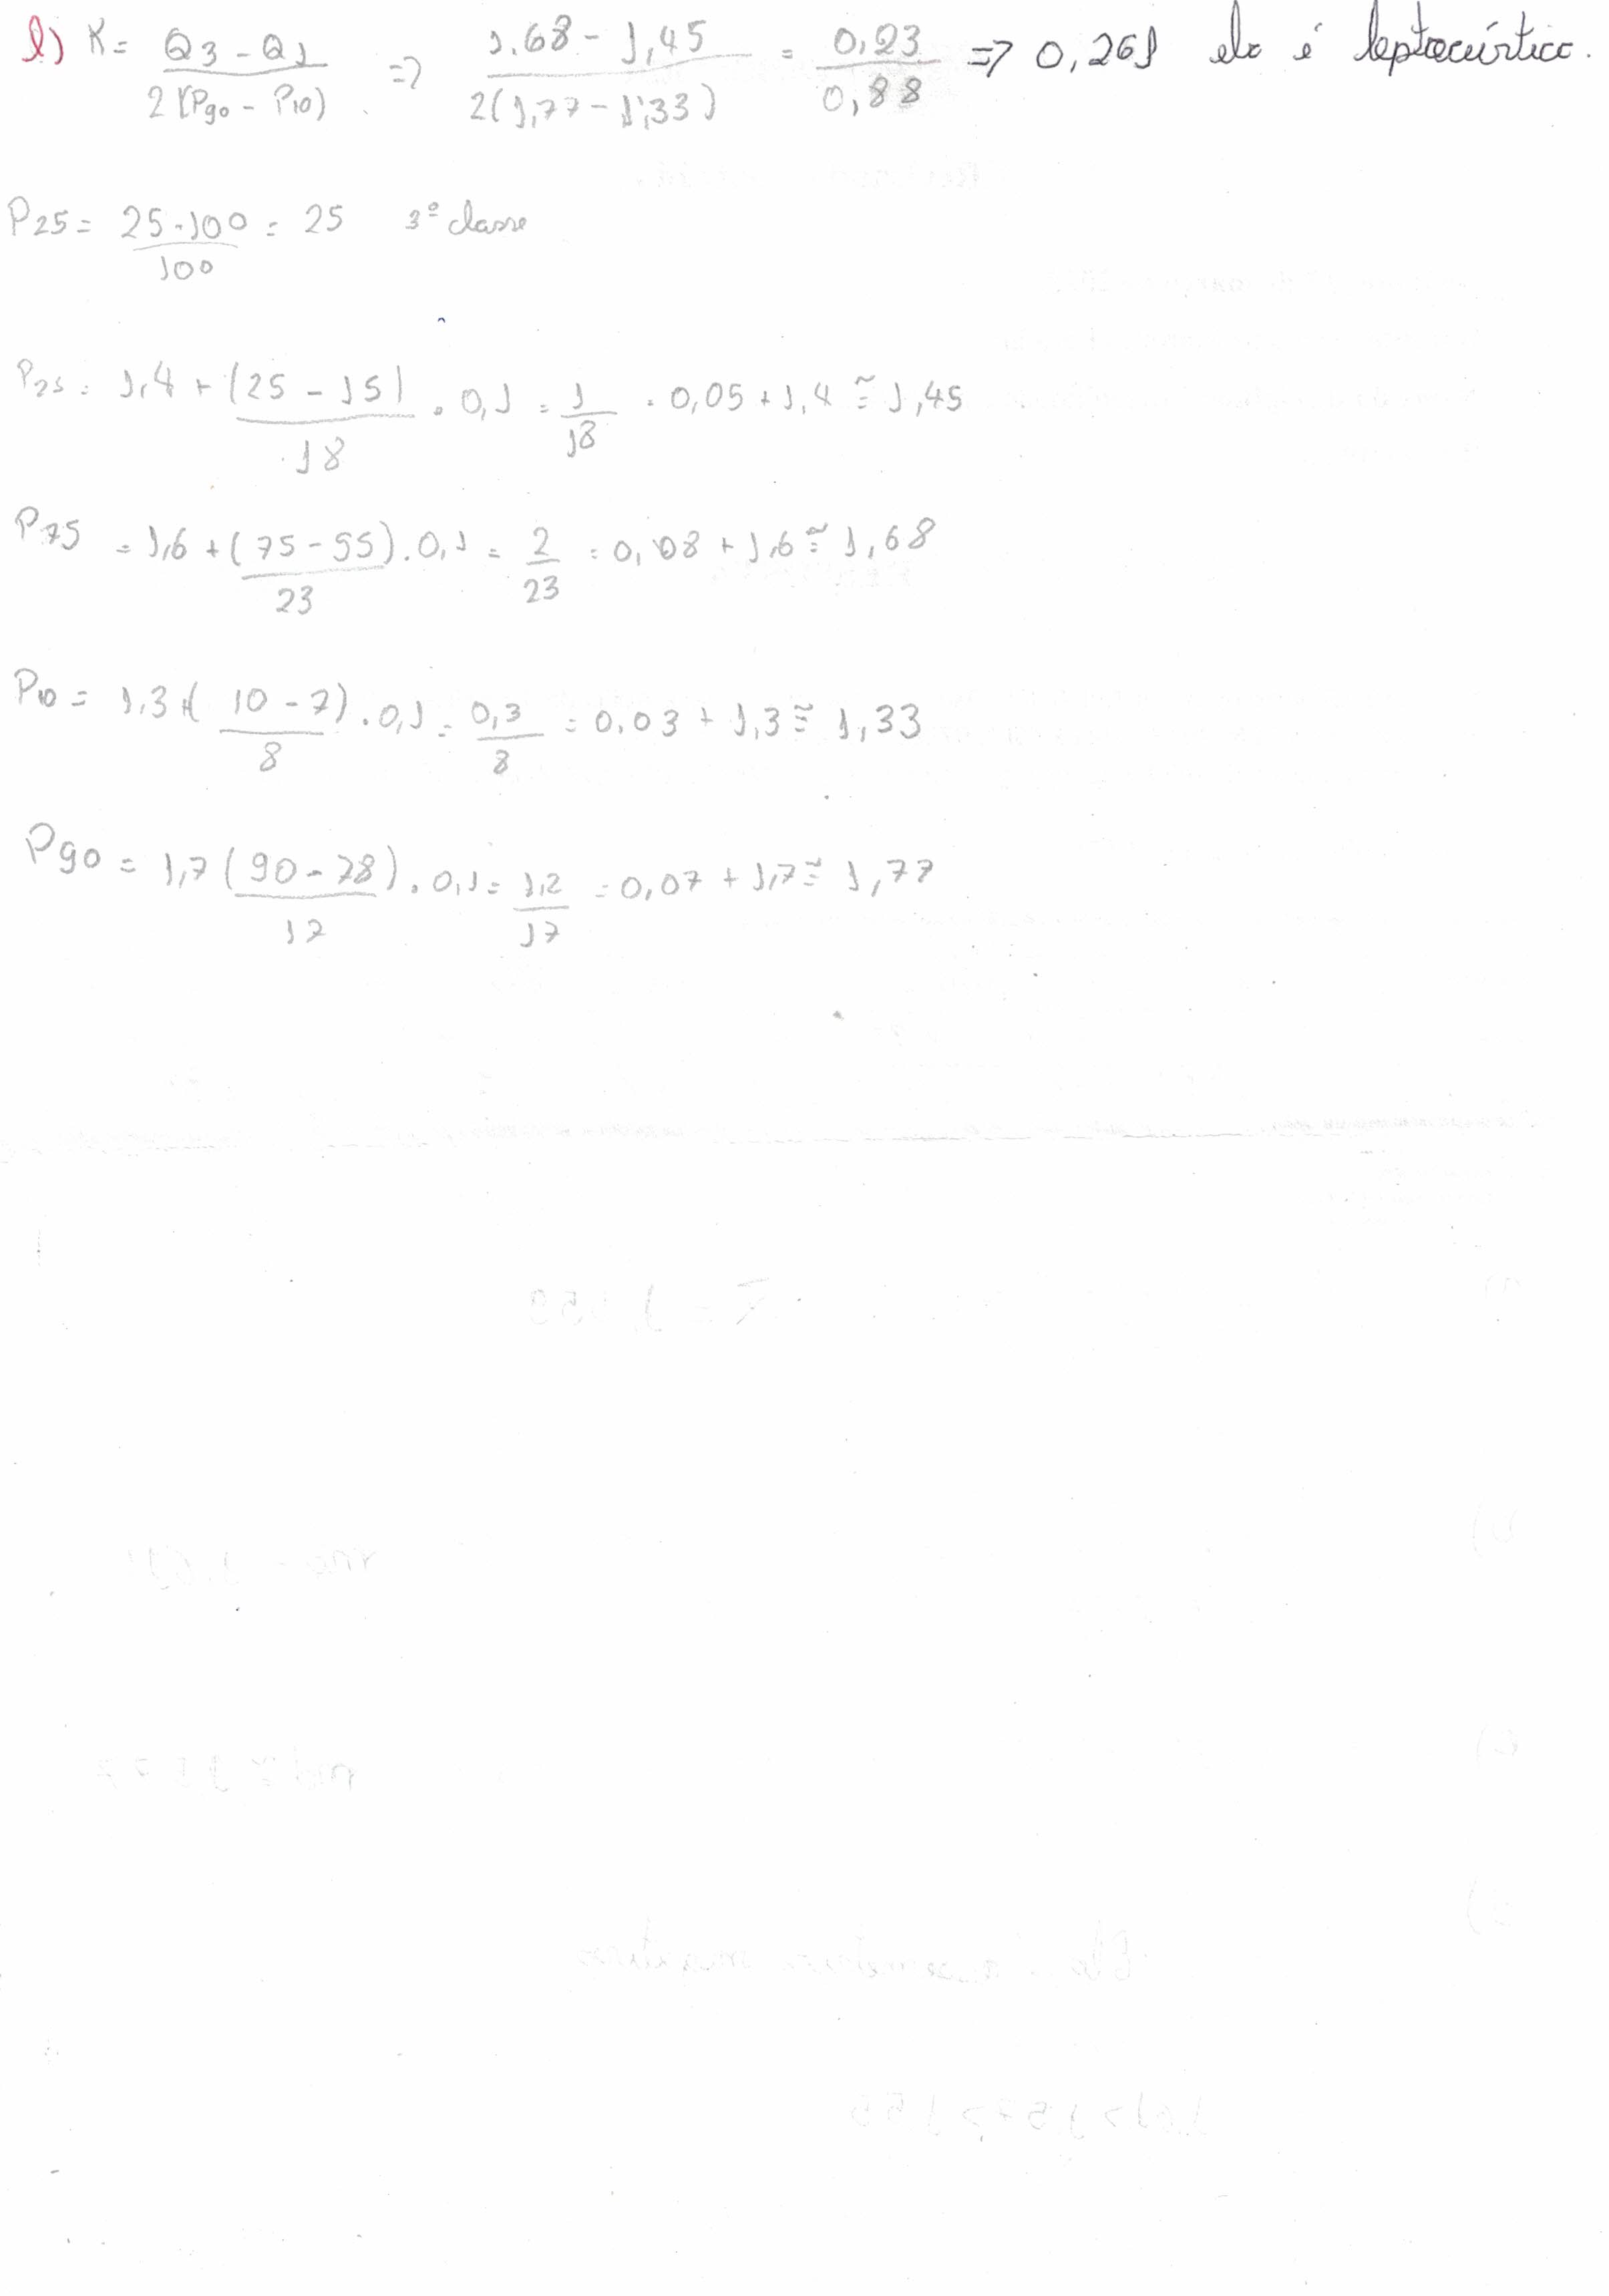 l) K = Q3 - Q1 / 2(P90 - P10) => 1.68 - 1,45 / 2(1,77 - 1,33) = 0,23 / 0,88 => 0,261 ela é leptocúrtica.
P25 = 25.100 / 100 = 25 3º classe
P25 = 1,4 + (25 - 15) / 18 . 0,1 = 1 / 18 . 0,05 + 1,4 ≅ 1,45
P75 = 1,6 + (75 - 55) / 23 . 0,1 = 2 / 23 = 0,08 + 1,6 ≅ 1,68
P10 = 1,3 + (10 - 7) / 8 . 0,1 = 0,3 / 8 = 0,03 + 1,3 ≅ 1,33
P90 = 1,7 (90 - 78) / 17 . 0,1 = 1,2 / 17 = 0,07 + 1,7 ≅ 1,77